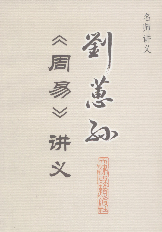 名师讲义
劉蕙孫
《周易》讲义